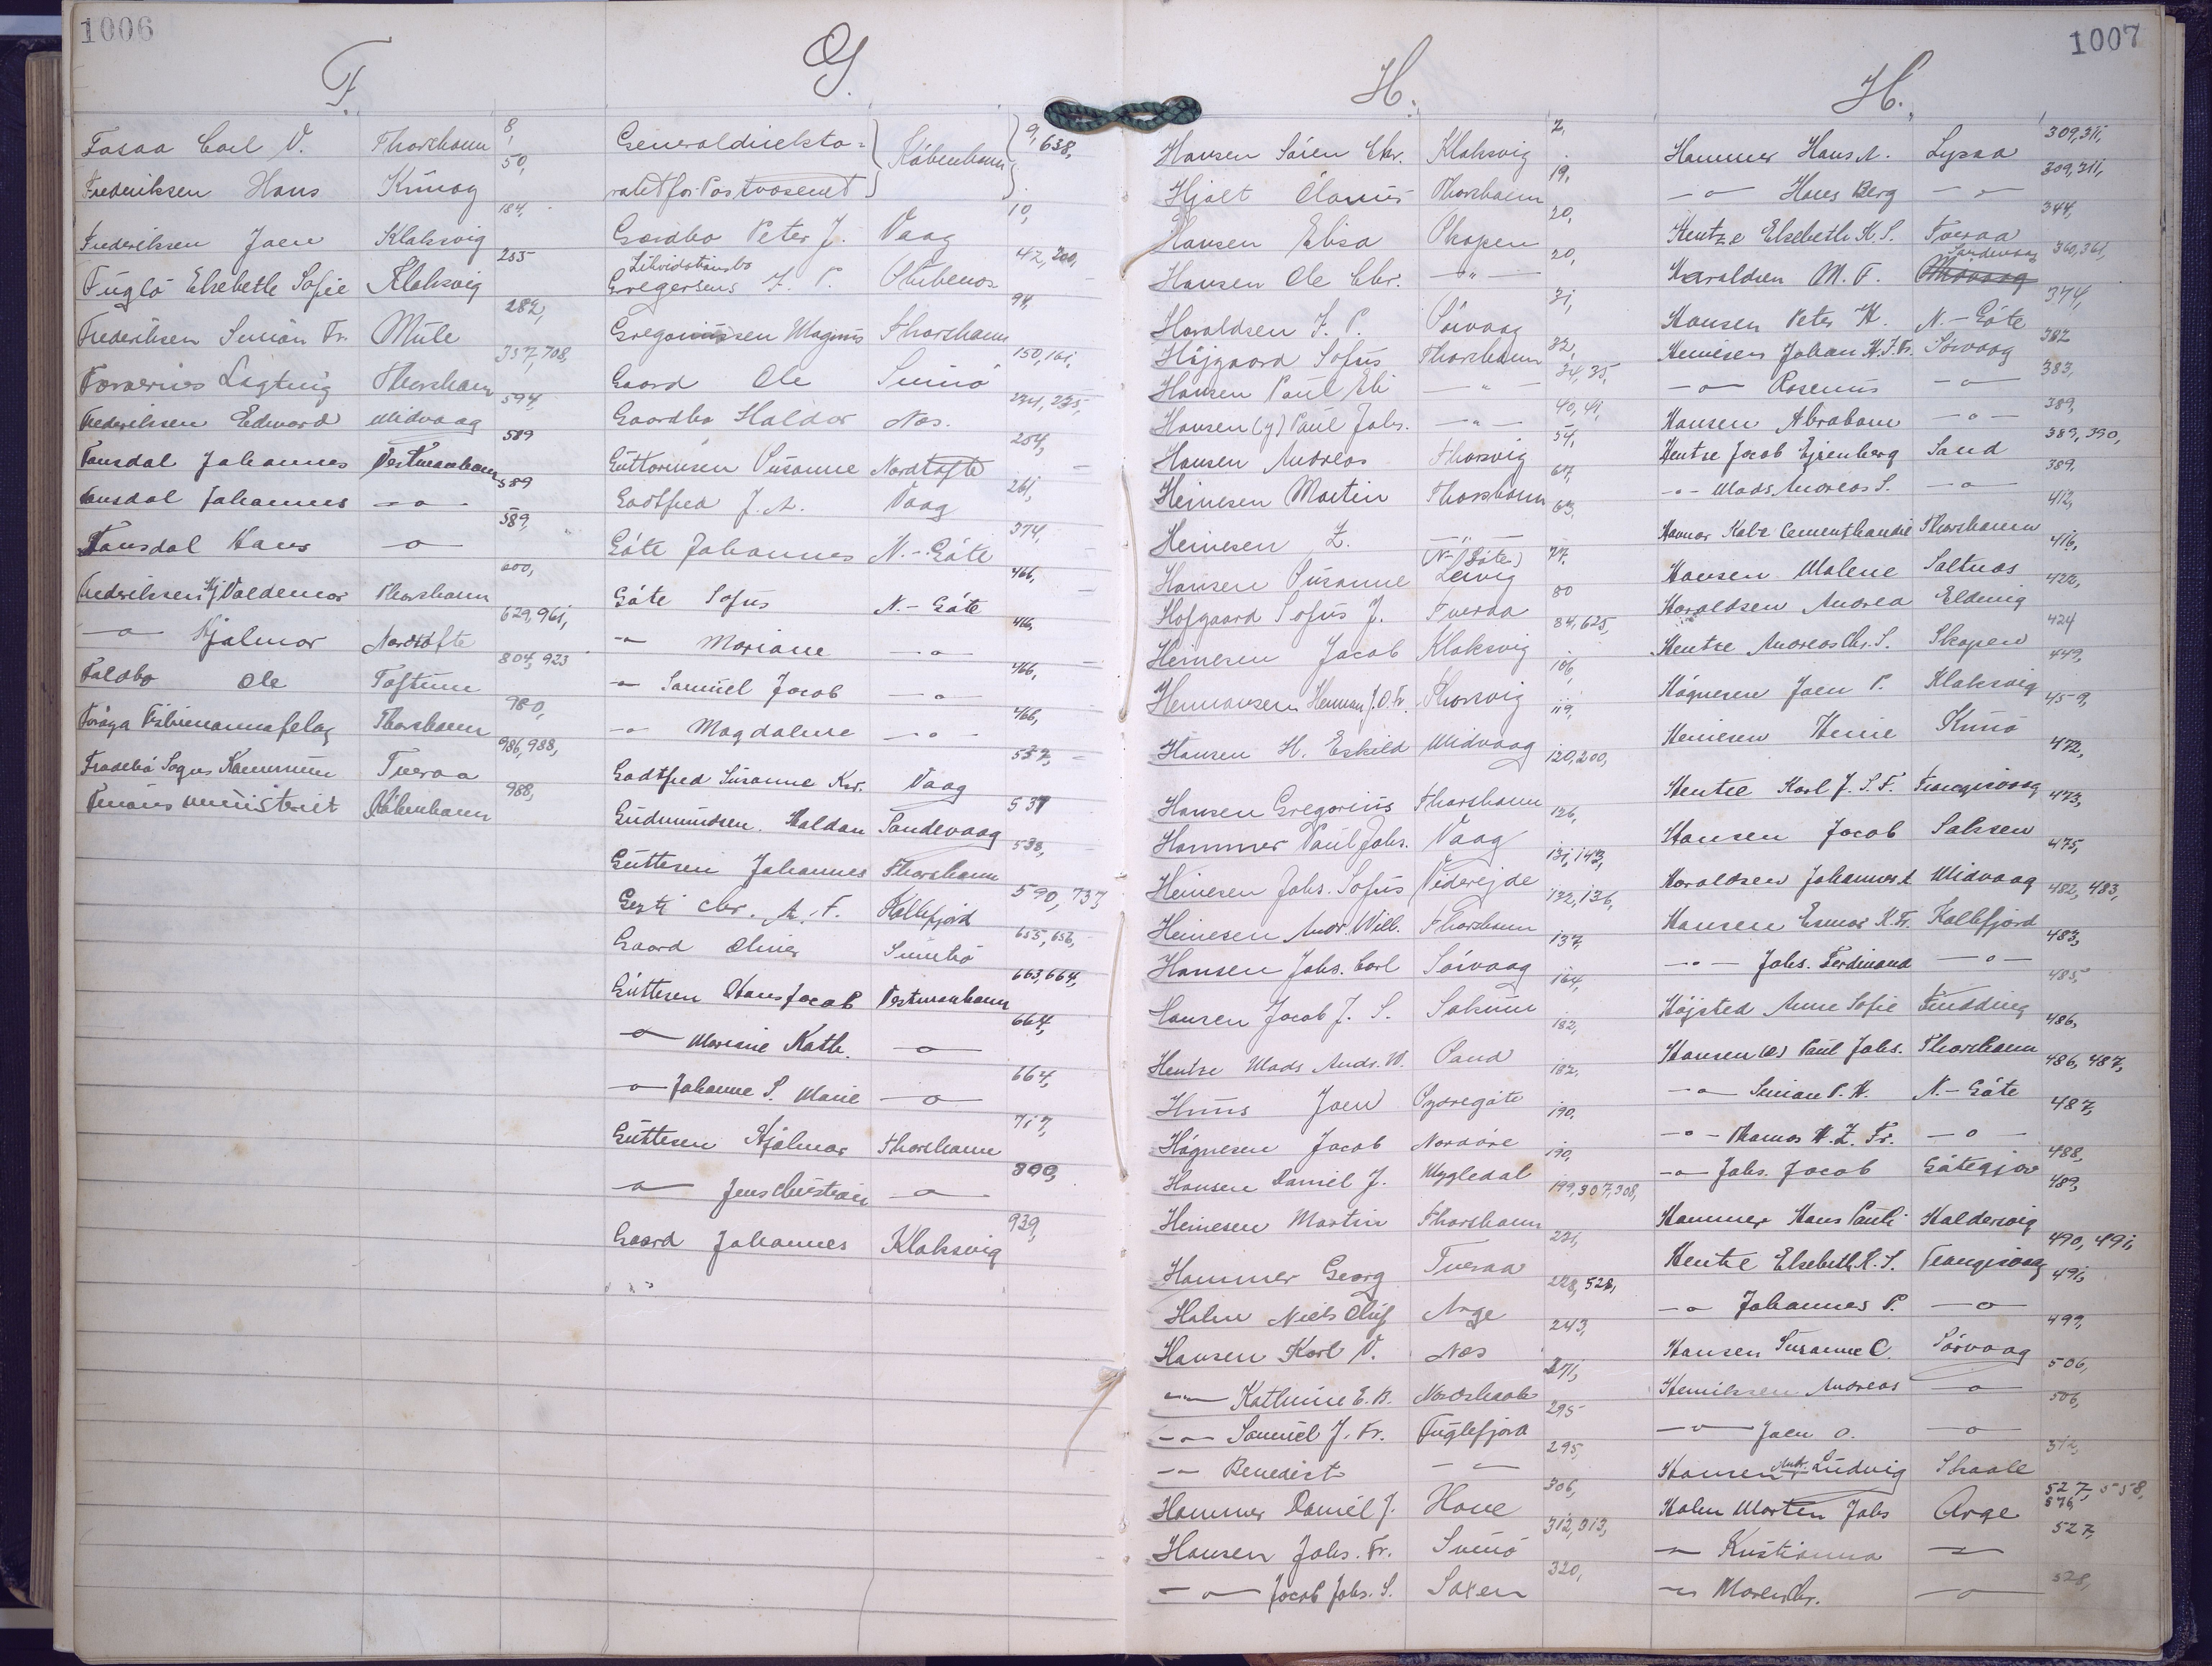 1006
F.
Fosaa Carl V. Thorshavn 8,
Frederiksen Hans Kunoy 50,
Frederiksen Joen Klaksvig 184,
Fuglö Elsebeth Sofie Klaksvig 255
Frederiksen Simon Fr. Mule 282,
Færøernes Lagting Thorshavn 357, 708,
Frederiksen Edward Midvaag 594,
Fonsdal Johannes Vestmanhavn 589
Fonsdal Johannes -o- 589
Fonsdal Hans -o- 589,
Frederiksen Hj Valdemar Thorshavn 600,
-o- Hjalmar Nordtofte 629, 961,
Faldbo Ole Toftum 804, 923
Föroya Fiskimannafelag Thorshavn 980,
Frodebö Sogns Kommune Tveraa 986, 988,
Finansministeriet København 988,
G.
Generaldirekto=
ratet for Postvæsenet København 9, 638,
Gærdbo Peter J. Vaag 10,
Likvidationsbo
Gregersens J. P. Stubenes 42, 200,
Gregoriussen Magnus Thorshavn 94,
Gaard Ole Sumbö 150, 161,
Gaardbo Haldor Næs. 234, 235,
Guttormsen Susanne Nordtofte 254,
Godtfred J. A. Vaag 261,
Göte Johannes N.-Göte 374,
Göte Sofus N.-Göte 466,
-o- Mariane -o- 466,
-o- Samuel Jacob -o- 466,
-o- Magdalene -o- 466,
Godtfred Susanne Kr. Vaag 537,
Gudmundsen. Haldan Sandevaag 537
Guttesen Johannes Thorshavn 538,
Gesti Chr. A. F. Kollefjord 590, 737
Gaard Oliver Sumbö 655, 656,
Guttesen Hans Jacob Vestmanhavn 663, 664,
-o- Mariane Kath. -o- 664,
-o- Johanne S. Marie -o- 664,
Guttesen Hjalmar Thorshavn 717,
-o- Jens Christian -o- 800,
Gaard Johannes Klaksvig 939,
1007
H.
Hansen Sören Chr. Klaksvig 2,
Hjalt Olavus Thorshavn 19,
Hansen Elisa Skopen 20,
Hansen Ole Chr. -"- 20,
Haraldsen J. P. Sörvaag 31,
Höjgaard Sofus Thorshavn 32,
Hansen Paul Eli -"- 34, 35,
Hansen (y) Paul Johs. -"- 40, 41,
Hansen Andreas Thorsvig 54,
Heinesen Martin Thorshavn 67,
Heinesen Z. -"- 63,
Hansen Susanne (N-Göte) Leivig 77,
Hofgaard Sofus J. Tveraa 80
Heinesen Jacob Klaksvig 84, 625,
Hermansen Herman J. O. Fr. Thorsvig 106,
Hansen H. Eskild Midvaag 119,
Hansen Gregorius Thorshavn 120, 200,
Hammer Paul Johs. Vaag 126,
Heinesen Johs. Sofus Viderejde 131, 143,
Heinesen Andr. Will. Thorshavn 132, 136,
Hansen Johs. Carl Sörvaag 137,
Hansen Jacob J. S. Saksun 164,
Hentze Mads Andr. W. Sand 182,
Huus Joen Sydregöte 182,
Högnesen Jacob Nordöre 190,
Hansen Daniel J. Mygledal 190,
Heinesen Martin Thorshavn 199, 307, 308,
Hammer Georg Tveraa 221,
Holm Niels Oluf Arge 228, 528,
Hansen Karl V. Næs 243,
-"- Kathrine E. B. Nordskaale 271,
-o- Samuel J. Fr. Fuglefjord 295
-o- Benedict -"- 295,
Hammer Daniel J. Hove 306,
Hansen Johs. Fr. Svinö 312, 313,
-o- Jacob Johs. S. Saxen 320,
H.
Hammer Hans A. Lysaa 309, 311,
-o- Hans Berg -"- 309, 311,
Hentze Elsebeth K. S. Tveraa 344,
Haraldsen M. F. Sandevaag Midvaag 360, 361,
Hansen Peter H. N.-Göte 374,
Heinesen Johan H. J. Fr. Sörvaag 382
-o- Rasmus -o- 383,
Hansen Abraham -o- 389,
Hentze Jacob Ejrenberg Sand 389, 390,
-o- Mads Andreas S. -o- 389,
Havnar Kola Cementhandil Thorshavn 412,
Hansen Malene Saltnes 416,
Haraldsen Andrea Elduvig 422,
Hentze Andreas Chr. S. Skopen 424
Högnesen Joen P. Klaksvig 449,
Heinesen Heine Kunö 459,
Hentze Karl J. S. F. Trangisvaag 472,
Hansen Jacob Saksen 473,
Haraldsen Johannes A. Midvaag 475,
Hansen Esmar K. Fr. Kollefjord 482, 483,
-o- Johs. Ferdinand -o- 483,
Höjsted Anne Sofie Funding 485,
Hansen (æ) Paul Johs. Thorshavn 486,
-o- Simon P. H. N.-Göte 486, 487,
-o- Thomas H. Z. Fr. -o- 487,
-o- Johs. Jacob Götegjov 488,
Hammer Hans Pauli Haldersvig 489,
Hentze Elsebeth K. S. Trangisvaag 490, 491,
-o- Johannes P. -o- 491,
Hansen Susanne C. Sörvaag 499,
Henriksen Andreas -o- 506,
-o- Joen O. -o- 506,
Hansen Andr. Ludvig Skaale 512,
Holm Morten Johs Arge 527, 558, 576,
-o- Kristianna -"- 527,
-o- Maren Chr. -o- 528,